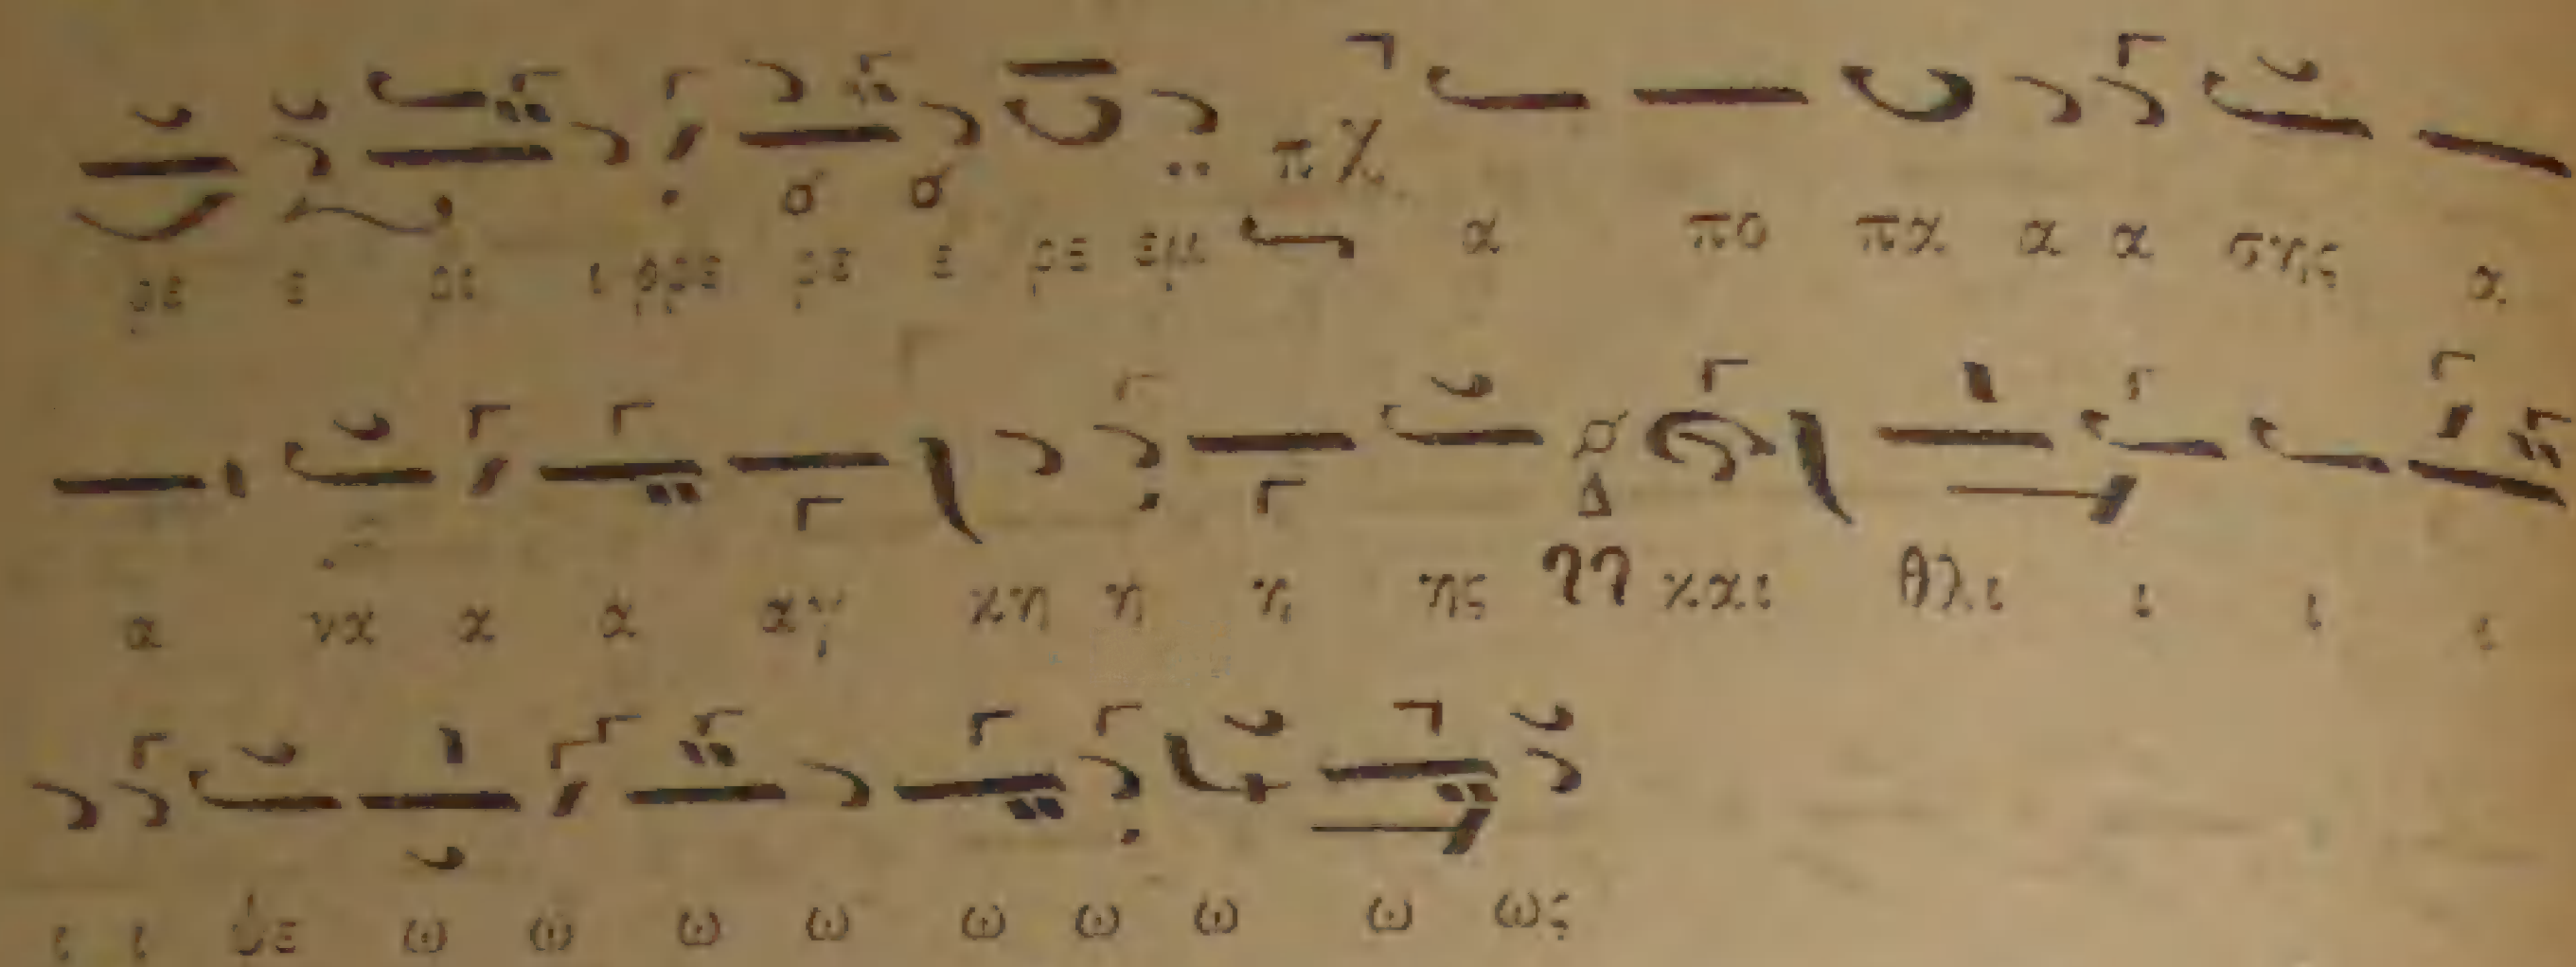 ρε ε ρι ι ρρε ρε ε ρε εμ α πο πα α α σης α
α να α α αγ κη η η ης και θλι ι ι ι
ι ι ψε ω ω ω ω ω ω ω ω ως